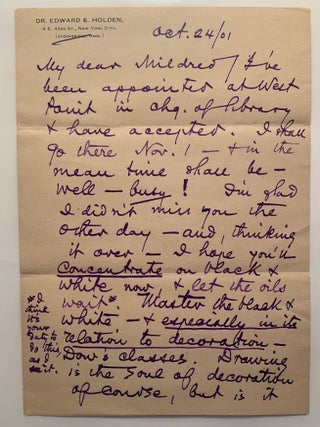 DR. EDWARD S. HOLDEN,
4 E. 43RD ST., NEW YORK CITY.
Oct. 24/01
My dear Mildred / I've
been appointed at West
Point in chg. of library
& have accepted. I shall
go there Nov. 1 — & in the
mean time shall be —
well — busy! I'm glad
I didn't miss you the
other day — and, thinking
it over — I hope you'll
concentrate on black &
white now, & let the oils
wait*. Master the black &
white — & especially in its
relation to decoration —
Dow's classes. Drawing
is the soul of decoration
of course, but is it
*I
think
it's
your
duty to
do this,
as I
see it.